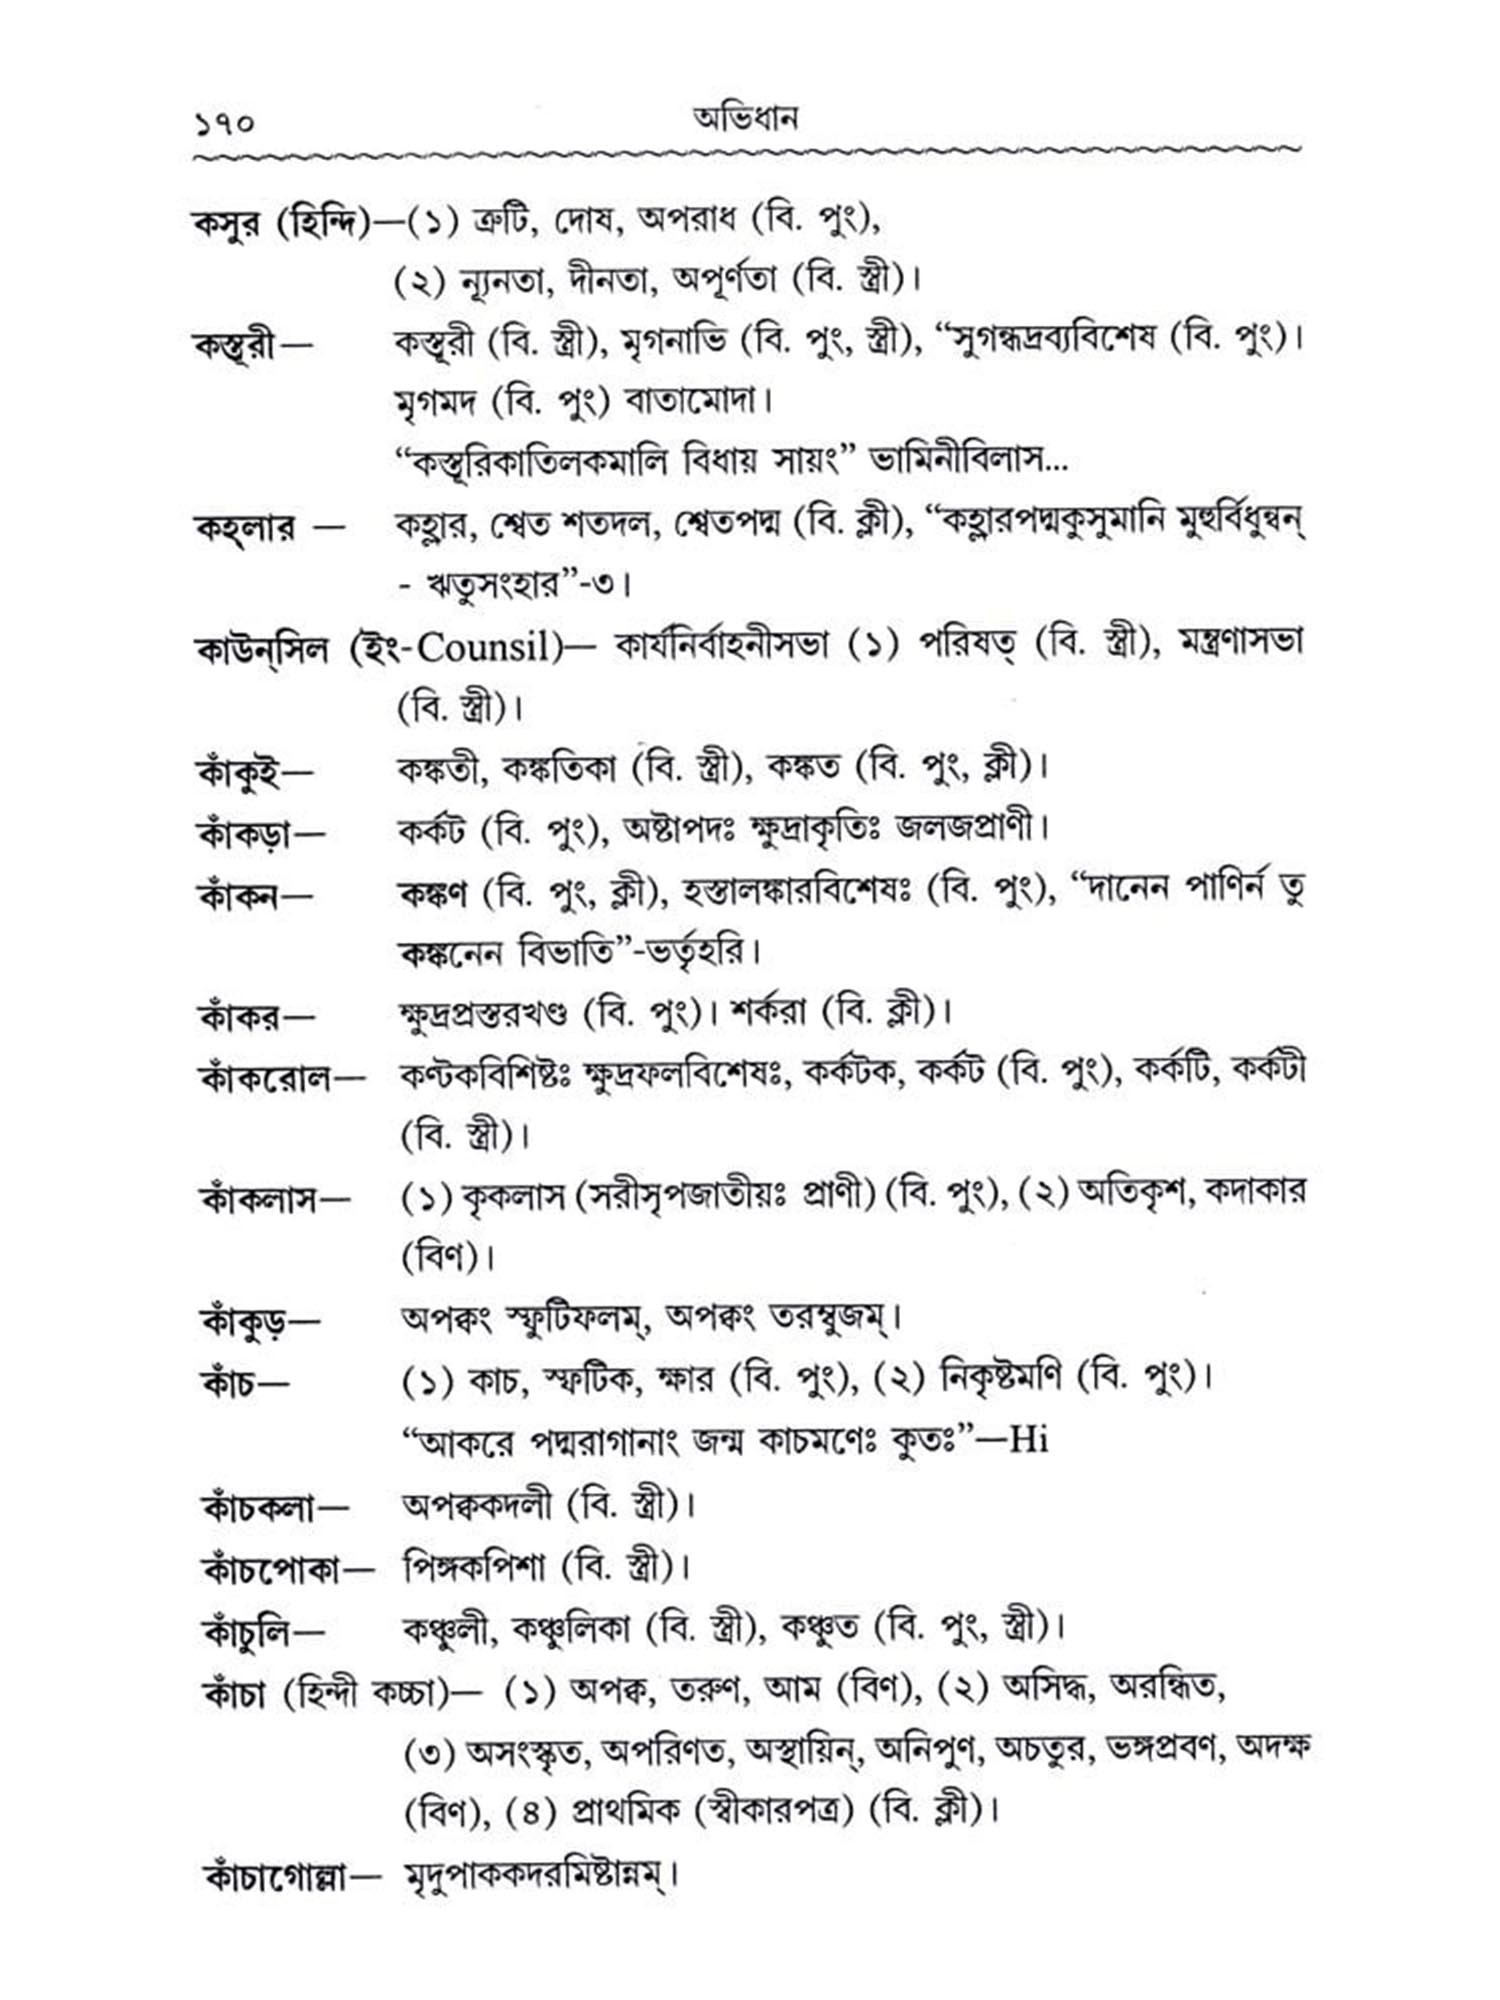 ১৭০ অভিধান
কসুর (হিন্দি)—(১) ত্রুটি, দোষ, অপরাধ (বি. পুং),
(২) ন্যূনতা, দীনতা, অপূর্ণতা (বি. স্ত্রী)।
কস্তূরী— কস্তূরী (বি. স্ত্রী), মৃগনাভি (বি. পুং, স্ত্রী), “সুগন্ধদ্রব্যবিশেষ (বি. পুং)।
মৃগমদ (বি. পুং) বাতামোদা।
“কস্তূরিকাতিলকমালি বিধায় সায়ং” ভামিনীবিলাস...
কহ্‌লার — কহ্লার, শ্বেত শতদল, শ্বেতপদ্ম (বি. ক্লী), “কহ্লারপদ্মকুসুমানি মুহুর্বিধুন্বন্
- ঋতুসংহার”-৩।
কাউন্‌সিল (ইং-Counsil)— কার্যনির্বাহনীসভা (১) পরিষত্ (বি. স্ত্রী), মন্ত্রণাসভা
(বি. স্ত্রী)।
কাঁকুই— কঙ্কতী, কঙ্কতিকা (বি. স্ত্রী), কঙ্কত (বি. পুং, ক্লী)।
কাঁকড়া— কর্কট (বি. পুং), অষ্টাপদঃ ক্ষুদ্রাকৃতিঃ জলজপ্রাণী।
কাঁকন— কঙ্কণ (বি. পুং, ক্লী), হস্তালঙ্কারবিশেষঃ (বি. পুং), “দানেন পাণির্ন তু
কঙ্কনেন বিভাতি”-ভর্তৃহরি।
কাঁকর— ক্ষুদ্রপ্রস্তরখণ্ড (বি. পুং)। শর্করা (বি. ক্লী)।
কাঁকরোল— কণ্টকবিশিষ্টঃ ক্ষুদ্রফলবিশেষঃ, কর্কটক, কর্কট (বি. পুং), কর্কটি, কর্কটী
(বি. স্ত্রী)।
কাঁকলাস— (১) কৃকলাস (সরীসৃপজাতীয়ঃ প্রাণী) (বি. পুং), (২) অতিকৃশ, কদাকার
(বিণ)।
কাঁকুড়— অপক্বং স্ফুটিফলম্, অপক্বং তরম্বুজম্।
কাঁচ— (১) কাচ, স্ফটিক, ক্ষার (বি. পুং), (২) নিকৃষ্টমণি (বি. পুং)।
“আকরে পদ্মরাগানাং জন্ম কাচমণেঃ কুতঃ”—Hi
কাঁচকলা— অপক্বকদলী (বি. স্ত্রী)।
কাঁচপোকা— পিঙ্গকপিশা (বি. স্ত্রী)।
কাঁচুলি— কঞ্চুলী, কঞ্চুলিকা (বি. স্ত্রী), কঞ্চুত (বি. পুং, স্ত্রী)।
কাঁচা (হিন্দী কচ্চা)— (১) অপক্ব, তরুণ, আম (বিণ), (২) অসিদ্ধ, অরন্ধিত,
(৩) অসংস্কৃত, অপরিণত, অস্থায়িন্, অনিপুণ, অচতুর, ভঙ্গপ্রবণ, অদক্ষ
(বিণ), (৪) প্রাথমিক (স্বীকারপত্র) (বি. ক্লী)।
কাঁচাগোল্লা— মৃদুপাককদরমিষ্টান্নম্।